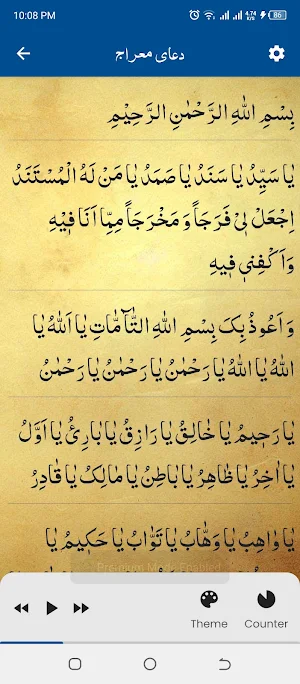 10:08 PM
4.74 K/s
86
دعای معراج
بِسْمِ اللهِ الرَّحْمٰنِ الرَّحِيْمِ
يٰا سَيِّدُ يٰا سَنَدُ يٰا صَمَدُ يٰا مَنْ لَهُ الْمُسْتَنَدُ
اِجْعَلْ لِيْ فَرَجَاً وَ مَخْرَجَاً مِمّٰا اَنَا فِيْهِ
وَ اَكْفِنِي فِيهِ
وَ اَعُوذُ بِكَ بِسْمِ اللهِ التّٰآمّٰاتِ يٰا اَللهُ يٰا
اللهُ يٰا اللهُ يٰا رَحْمٰنُ يٰا رَحْمٰنُ يٰا رَحْمٰنُ
يٰا رَحِيمُ يٰا خٰالِقُ يٰا رَازِقُ يٰا بٰارِئُ يٰا اَوَّلُ
يٰا اٰخِرُ يٰا ظٰاهِرُ يٰا بٰاطِنُ يٰا مٰالِكُ يٰا قٰادِرُ
يٰا وٰاهِبُ يٰا وَهّٰابُ يٰا تَوّٰابُ يٰا حَكِيمُ يٰا
Premium Mode Enabled
Theme
Counter